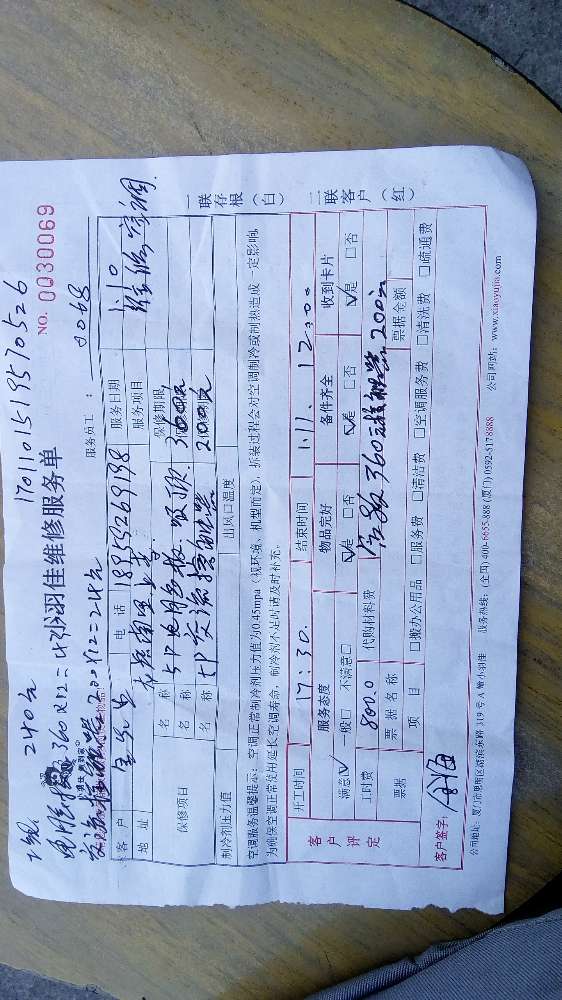 17011015195 70526
240元
360×12=
200×12=24元
小羽佳维修服务单
NO. 0030069
服务员工： 2068
客 户
电 话 18959269198
服务日期 1.10
地 址
服务项目 维修空调
保修项目
名 称
保修期限 360元
名 称 交流接触器
保修期限 200元
名 称
制冷剂压力值
出风口温度
空调服务温馨提示：空调正常制冷剂压力值为0.45mpa（视环境、机型而定），拆装过程会对空调制冷或制热造成一定影响
为确保空调正常使用延长空调寿命，制冷剂不足时请及时补充。
开工时间 17:30
结束时间 1.11. 12:00
客户评定
服务态度
物品完好
备件齐全
收到卡片
满意☑ 一般□ 不满意□
☑是 □否
☑是 □否
☑是 □否
工时费 800.0
代购材料费 360元接触器200元
票据
票据名称
票据金额
项 目
□搬办公用品 □服务费 □清洁费 □空调服务费 □清洗费 □疏通费
客户签字：
公司地址：厦门市思明区湖滨东路 319 号 A 幢小羽佳
服务热线：(全国) 400-6655-888 (厦门) 0592-5178888
公司网站：www.xiaoyujia.com
一联存根（白）
二联客户（红）